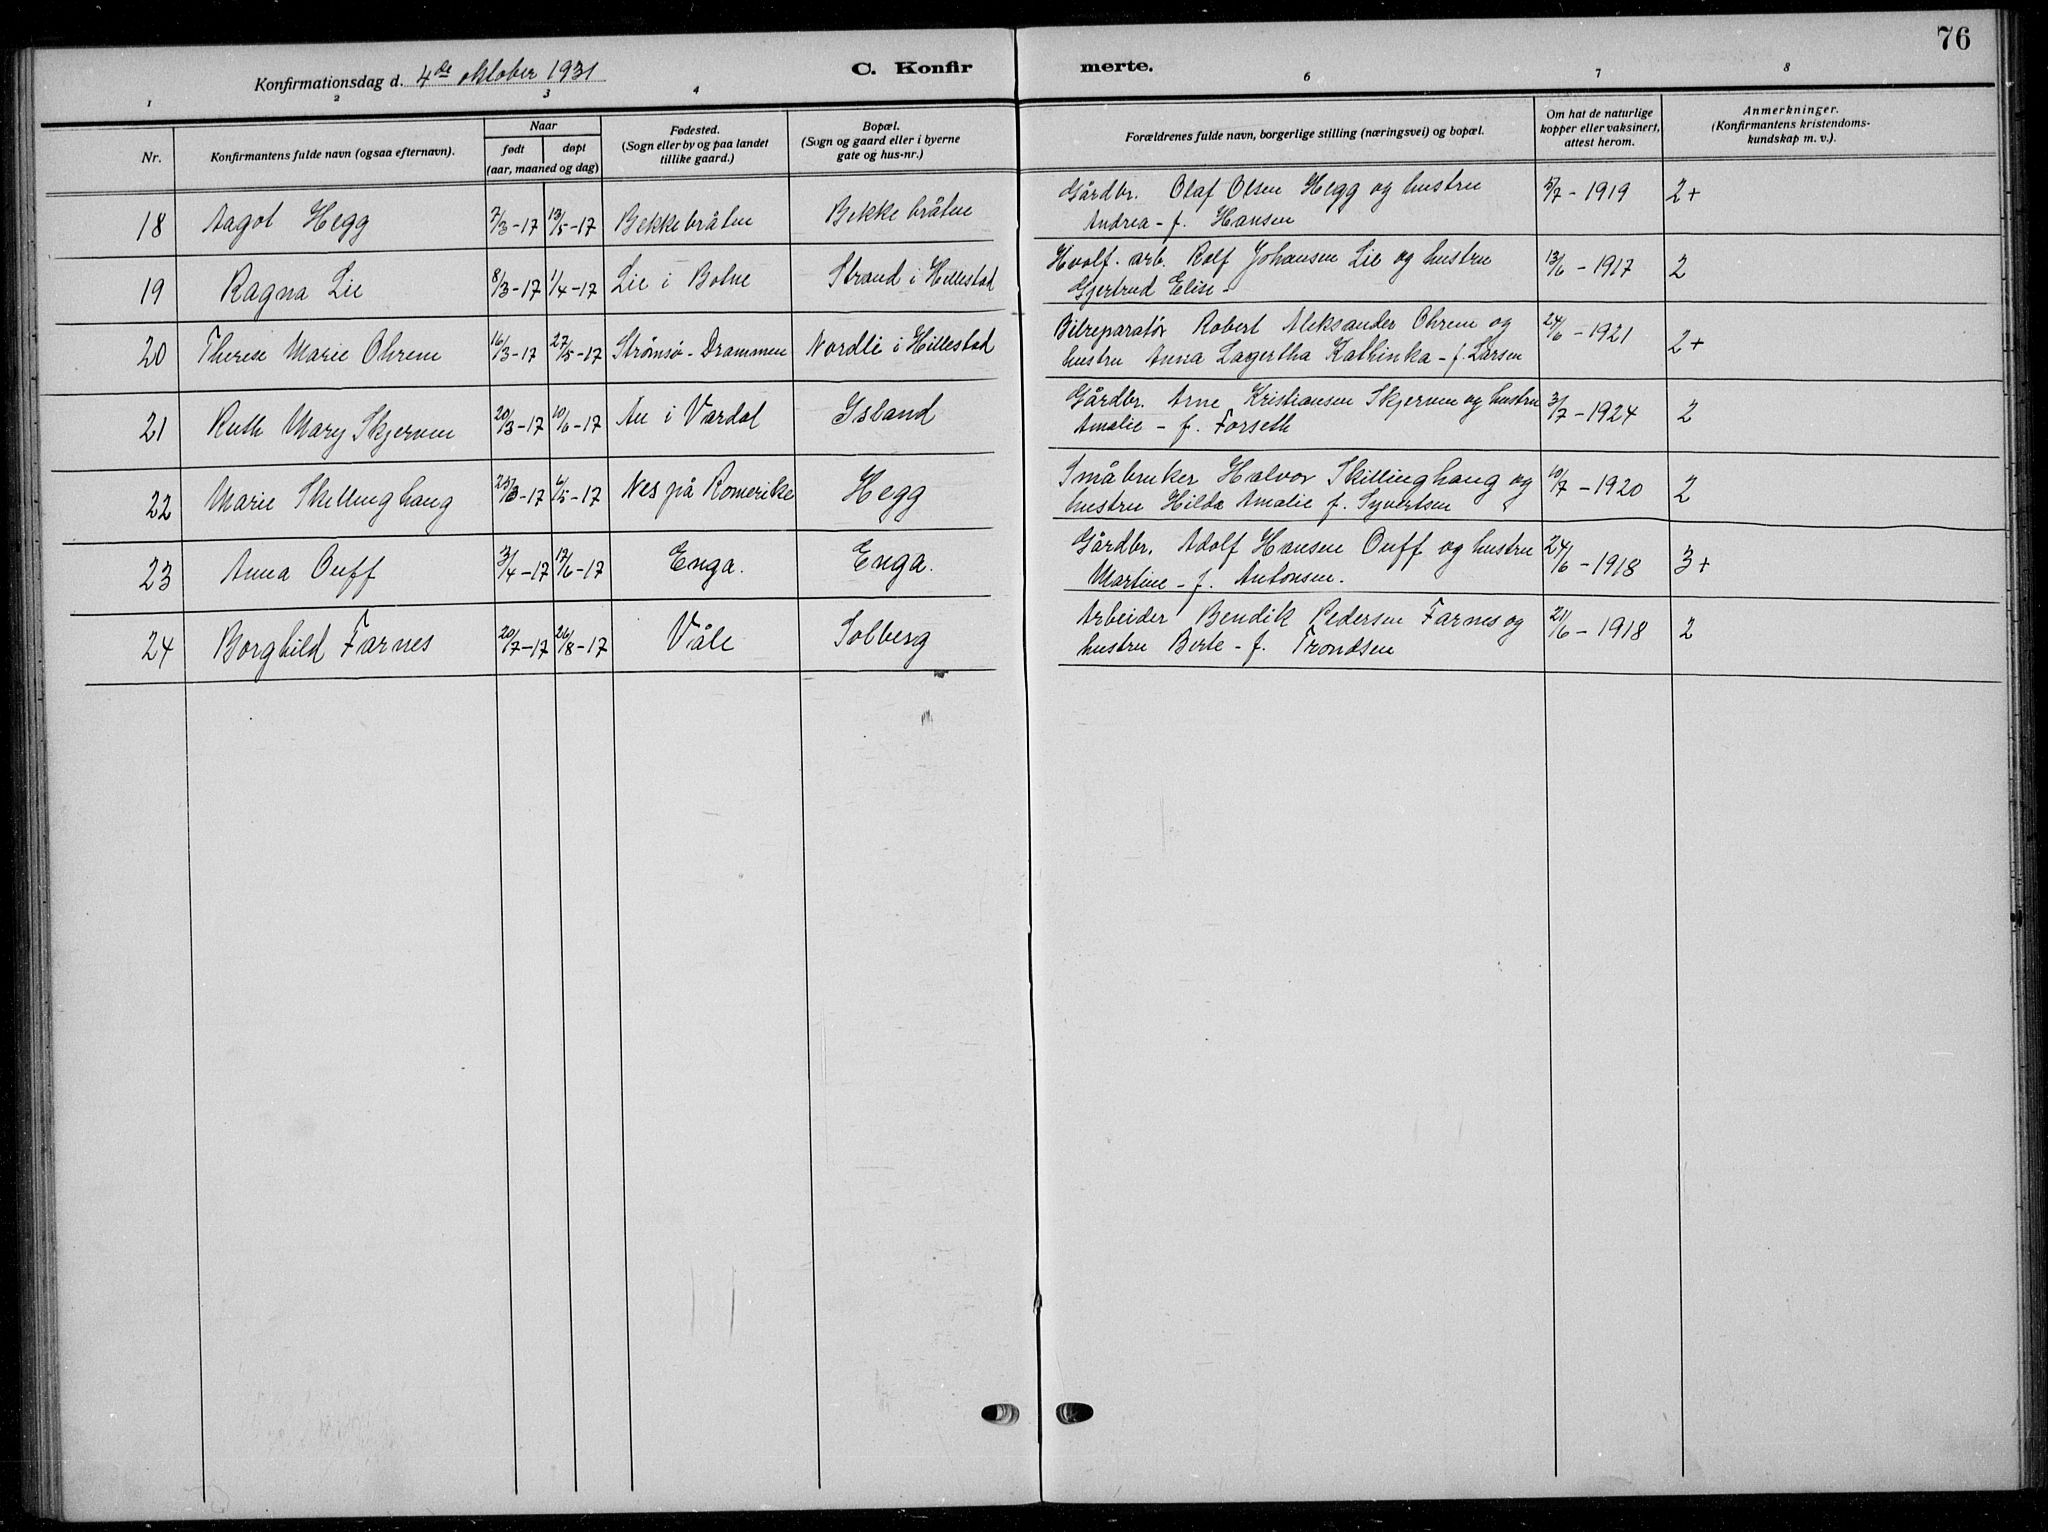 76
Konfirmationsdag d. 4de oktober 1931 C. Konfir merte.
1 2 3 4 6 7 8
Nr. Konfirmantens fulde navn (ogsaa efternavn). Naar født døpt (aar, maaned og dag) Fødested. (Sogn eller by og paa landet tillike gaard.) Bopæl. (Sogn og gaard eller i byerne gate og hus-nr.) Forældrenes fulde navn, borgerlige stilling (næringsvei) og bopæl. Om hat de naturlige kopper eller vaksinert, attest herom. Anmerkninger. (Konfirmantens kristendoms-kundskap m. v.).
18 Aagot Hegg 7/3-17 13/5-17 Bekkebråten Bekkebråten Gårdbr. Olaf Olsen Hegg og hustru 5/7-1919 2+
Andrea - f. Hansen
19 Ragna Lie 8/3-17 1/4-17 Lie i Botne Strand i Hillestad Hvalf. arb. Rolf Johansen Lie og hustru 13/6-1917 2
Gjertrud Elise -
20 Therese Marie Ohrem 16/3-17 27/5-17 Strømsø-Drammen Nordli i Hillestad Bilreparatør Robert Aleksander Ohrem og 24/6-1921 2+
hustru Anna Lagertha Kathinka - f. Larsen
21 Ruth Mary Skjerven 20/3-17 10/6-17 Au i Vardal Island Gårdbr. Arne Kristiansen Skjerven og hustru 3/7-1924 2
Amalie - f. Forseth
22 Marie Skillinghaug 23/3-17 6/5-17 Nes på Romerike Hegg Småbruker Halvor Skillinghaug og 10/7-1920 2
hustru Hilda Amalie f. Syvertsen
23 Anna Ouff 3/4-17 17/6-17 Enga. Enga. Gårdbr. Adolf Hansen Ouff og hustru 24/6-1918 3+
Martine - f. Antonsen.
24 Borghild Farnes 20/7-17 26/8-17 Våle Solberg Arbeider Bendik Pedersen Farnes og 21/6-1918 2
hustru Berte - f. Trondsen